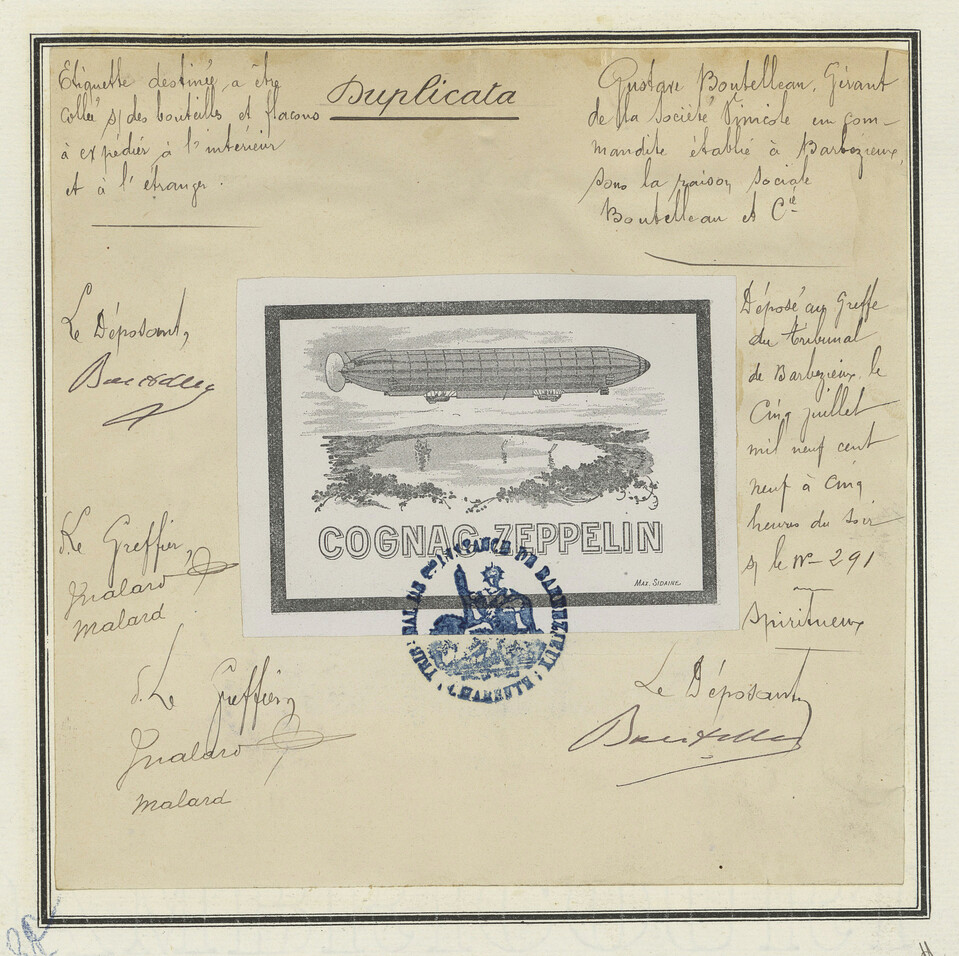 Duplicata
Etiquette destinée à être
collée s/ des bouteilles et flacons
à expédier à l'intérieur
et à l'étranger.
Gustave Boutelleau, Gérant
de la Société Vinicole en com-
mandite établie à Barbezieux,
sous la raison sociale
Boutelleau et Cie
Le Déposant,
Boutelleau
Déposé au Greffe
du tribunal
de Barbezieux, le
Cinq juillet
mil neuf cent
neuf à cinq
heures du soir
s/ le No 291
Spiritueux
COGNAC ZEPPELIN
Max. Sidaine
TRIBUNAL DE 1ère INSTANCE DE BARBEZIEUX
(CHARENTE)
Le Greffier,
Malard
Malard
Le Greffier,
Malard
Malard
Le Déposant,
Boutelleau